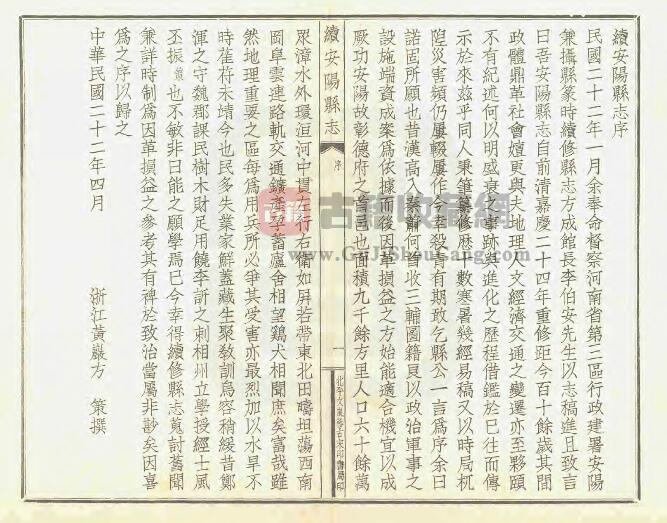 續安陽縣志序
民國二十二年一月余奉命督察河南省第三區行政建署安陽
兼攝縣篆時續修縣志方成館長李伯安先生以志稿進且致言
曰吾安陽縣志自前清嘉慶二十四年重修距今百十餘歲其間
政體鼎革社會嬗更與夫地理人文經濟交通之變遷亦至夥頤
不有紀述何以明盛衰之事跡念進化之歷程借鑑於已往而傳
示於來茲乎同人秉筆纂修歷十數寒暑幾經易稿又以時局杌
隉災害頻仍屢輟屢作今幸殺青有期敢乞縣公一言爲序余曰
諾固所願也昔漢高入秦蕭何首收三輔圖籍良以政治軍事之
設施端資成案爲依據而後因革損益之方始能適合機宜以成
厥功安陽故彰德府之首邑也面積九千餘方里人口六十餘萬
續安陽縣志
序
一
北平文嵐簃古宋印書局印
眾漳水外環洹河中貫左行右衛如屏若帶東北田疇坦蕩西南
岡阜雲連路軌交通鑛產孕蓄廬舍相望鷄犬相聞庶矣富哉雖
然地理重要之區每爲用兵所必爭其受害亦最烈加以水旱不
時萑苻未靖今也民多失業家鮮蓋藏生聚敎訓烏容稍緩昔鄭
渾之守魏郡課民樹木財足用饒李訢之刺相州立學授經士風
丕振策也不敏非曰能之願學焉已今幸得續修縣志蒐討舊聞
兼詳時制爲因革損益之參考其有裨於致治當屬非尠矣因喜
爲之序以歸之
中華民國二十二年四月
浙江黃巖方策撰
古籍收藏網
www.GuJiShouCang.com